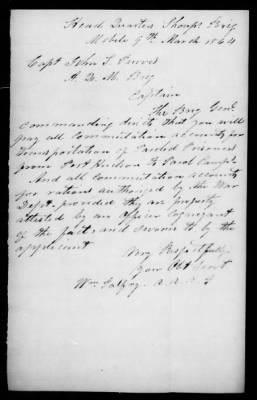 Head Quarters Thomps Brig
Mobile 9th March 1864
Capt John S
A. Q. M. Brig
Captain
The Brig Genl
commanding directs that you will
pay all Commutation accounts for
transportation of Paroled Prisoners
from Port Hudson to Parol Camps.
And all commutation accounts
for rations authorized by the War
Dept. provided they are properly
attested by an Officer Cognizant
of the fact, and sworn to by the
applicant
Very Respectfully
Your Obt Servt
Wm A. A. A. G